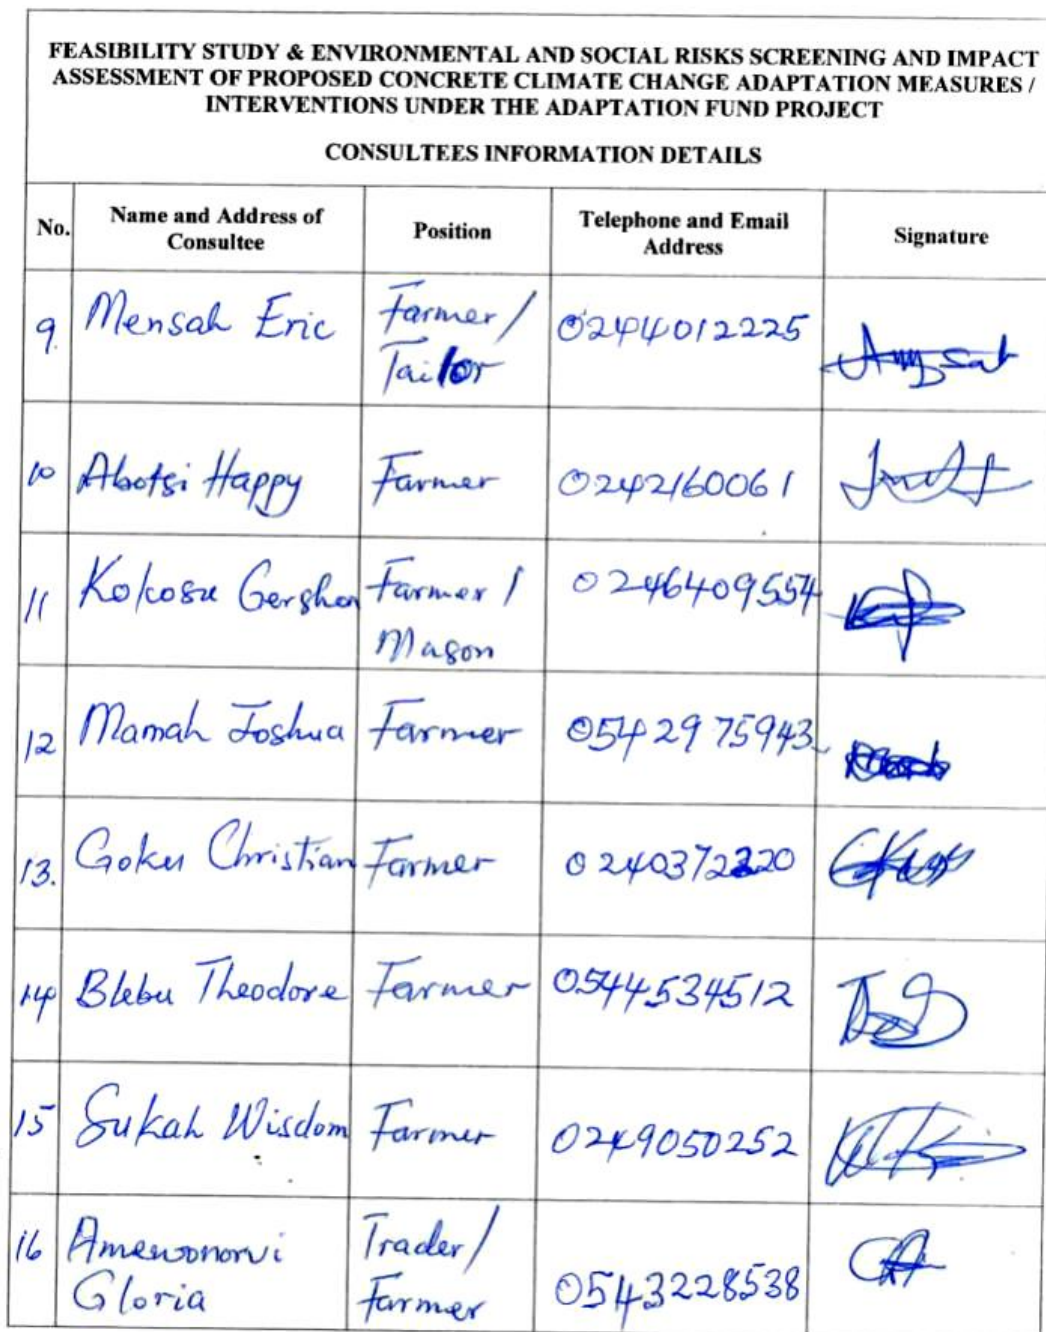 FEASIBILITY STUDY & ENVIRONMENTAL AND SOCIAL RISKS SCREENING AND IMPACT
ASSESSMENT OF PROPOSED CONCRETE CLIMATE CHANGE ADAPTATION MEASURES /
INTERVENTIONS UNDER THE ADAPTATION FUND PROJECT
CONSULTEES INFORMATION DETAILS
No. Name and Address of Consultee Position Telephone and Email Address Signature
9. Mensah Eric Farmer / Tailor 0244012225
10 Abotsi Happy Farmer 0242160061
11 Kokosu Gershon Farmer / Mason 0246409554
12 Mamah Joshua Farmer 0542975943
13. Goku Christian Farmer 0240372220
14 Blebu Theodore Farmer 0544534512
15 Sukah Wisdom Farmer 0249050252
16 Amewonorvi Gloria Trader / Farmer 0543228538